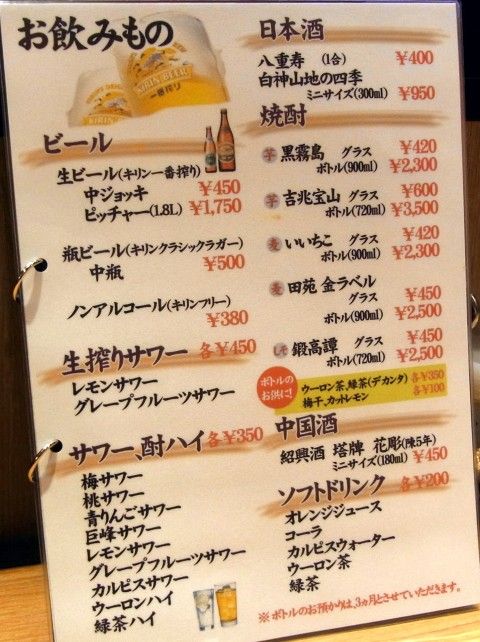 お飲みもの
KIRIN BEER
一番搾り
ビール
生ビール(キリン一番搾り)
中ジョッキ ¥450
ピッチャー(1.8L) ¥1,750
瓶ビール(キリンクラシックラガー)
中瓶 ¥500
ノンアルコール(キリンフリー)
¥380
生搾りサワー 各¥450
レモンサワー
グレープフルーツサワー
サワー、酎ハイ 各¥350
梅サワー
桃サワー
青りんごサワー
巨峰サワー
レモンサワー
グレープフルーツサワー
カルピスサワー
ウーロンハイ
緑茶ハイ
日本酒
八重寿 (1合) ¥400
白神山地の四季
ミニサイズ(300ml) ¥950
焼酎
芋 黒霧島 グラス ¥420
ボトル(900ml) ¥2,300
芋 吉兆宝山 グラス ¥600
ボトル(720ml) ¥3,500
麦 いいちこ グラス ¥420
ボトル(900ml) ¥2,300
麦 田苑 金ラベル
グラス ¥450
ボトル(900ml) ¥2,500
しそ 鍛高譚 グラス ¥450
ボトル(720ml) ¥2,500
ボトルのお供に!
ウーロン茶、緑茶(デカンタ) 各¥350
梅干、カットレモン 各¥100
中国酒
紹興酒 塔牌 花彫(陳5年)
ミニサイズ(180ml) ¥450
ソフトドリンク 各¥200
オレンジジュース
コーラ
カルピスウォーター
ウーロン茶
緑茶
※ボトルのお預かりは、3ヵ月とさせていただきます。